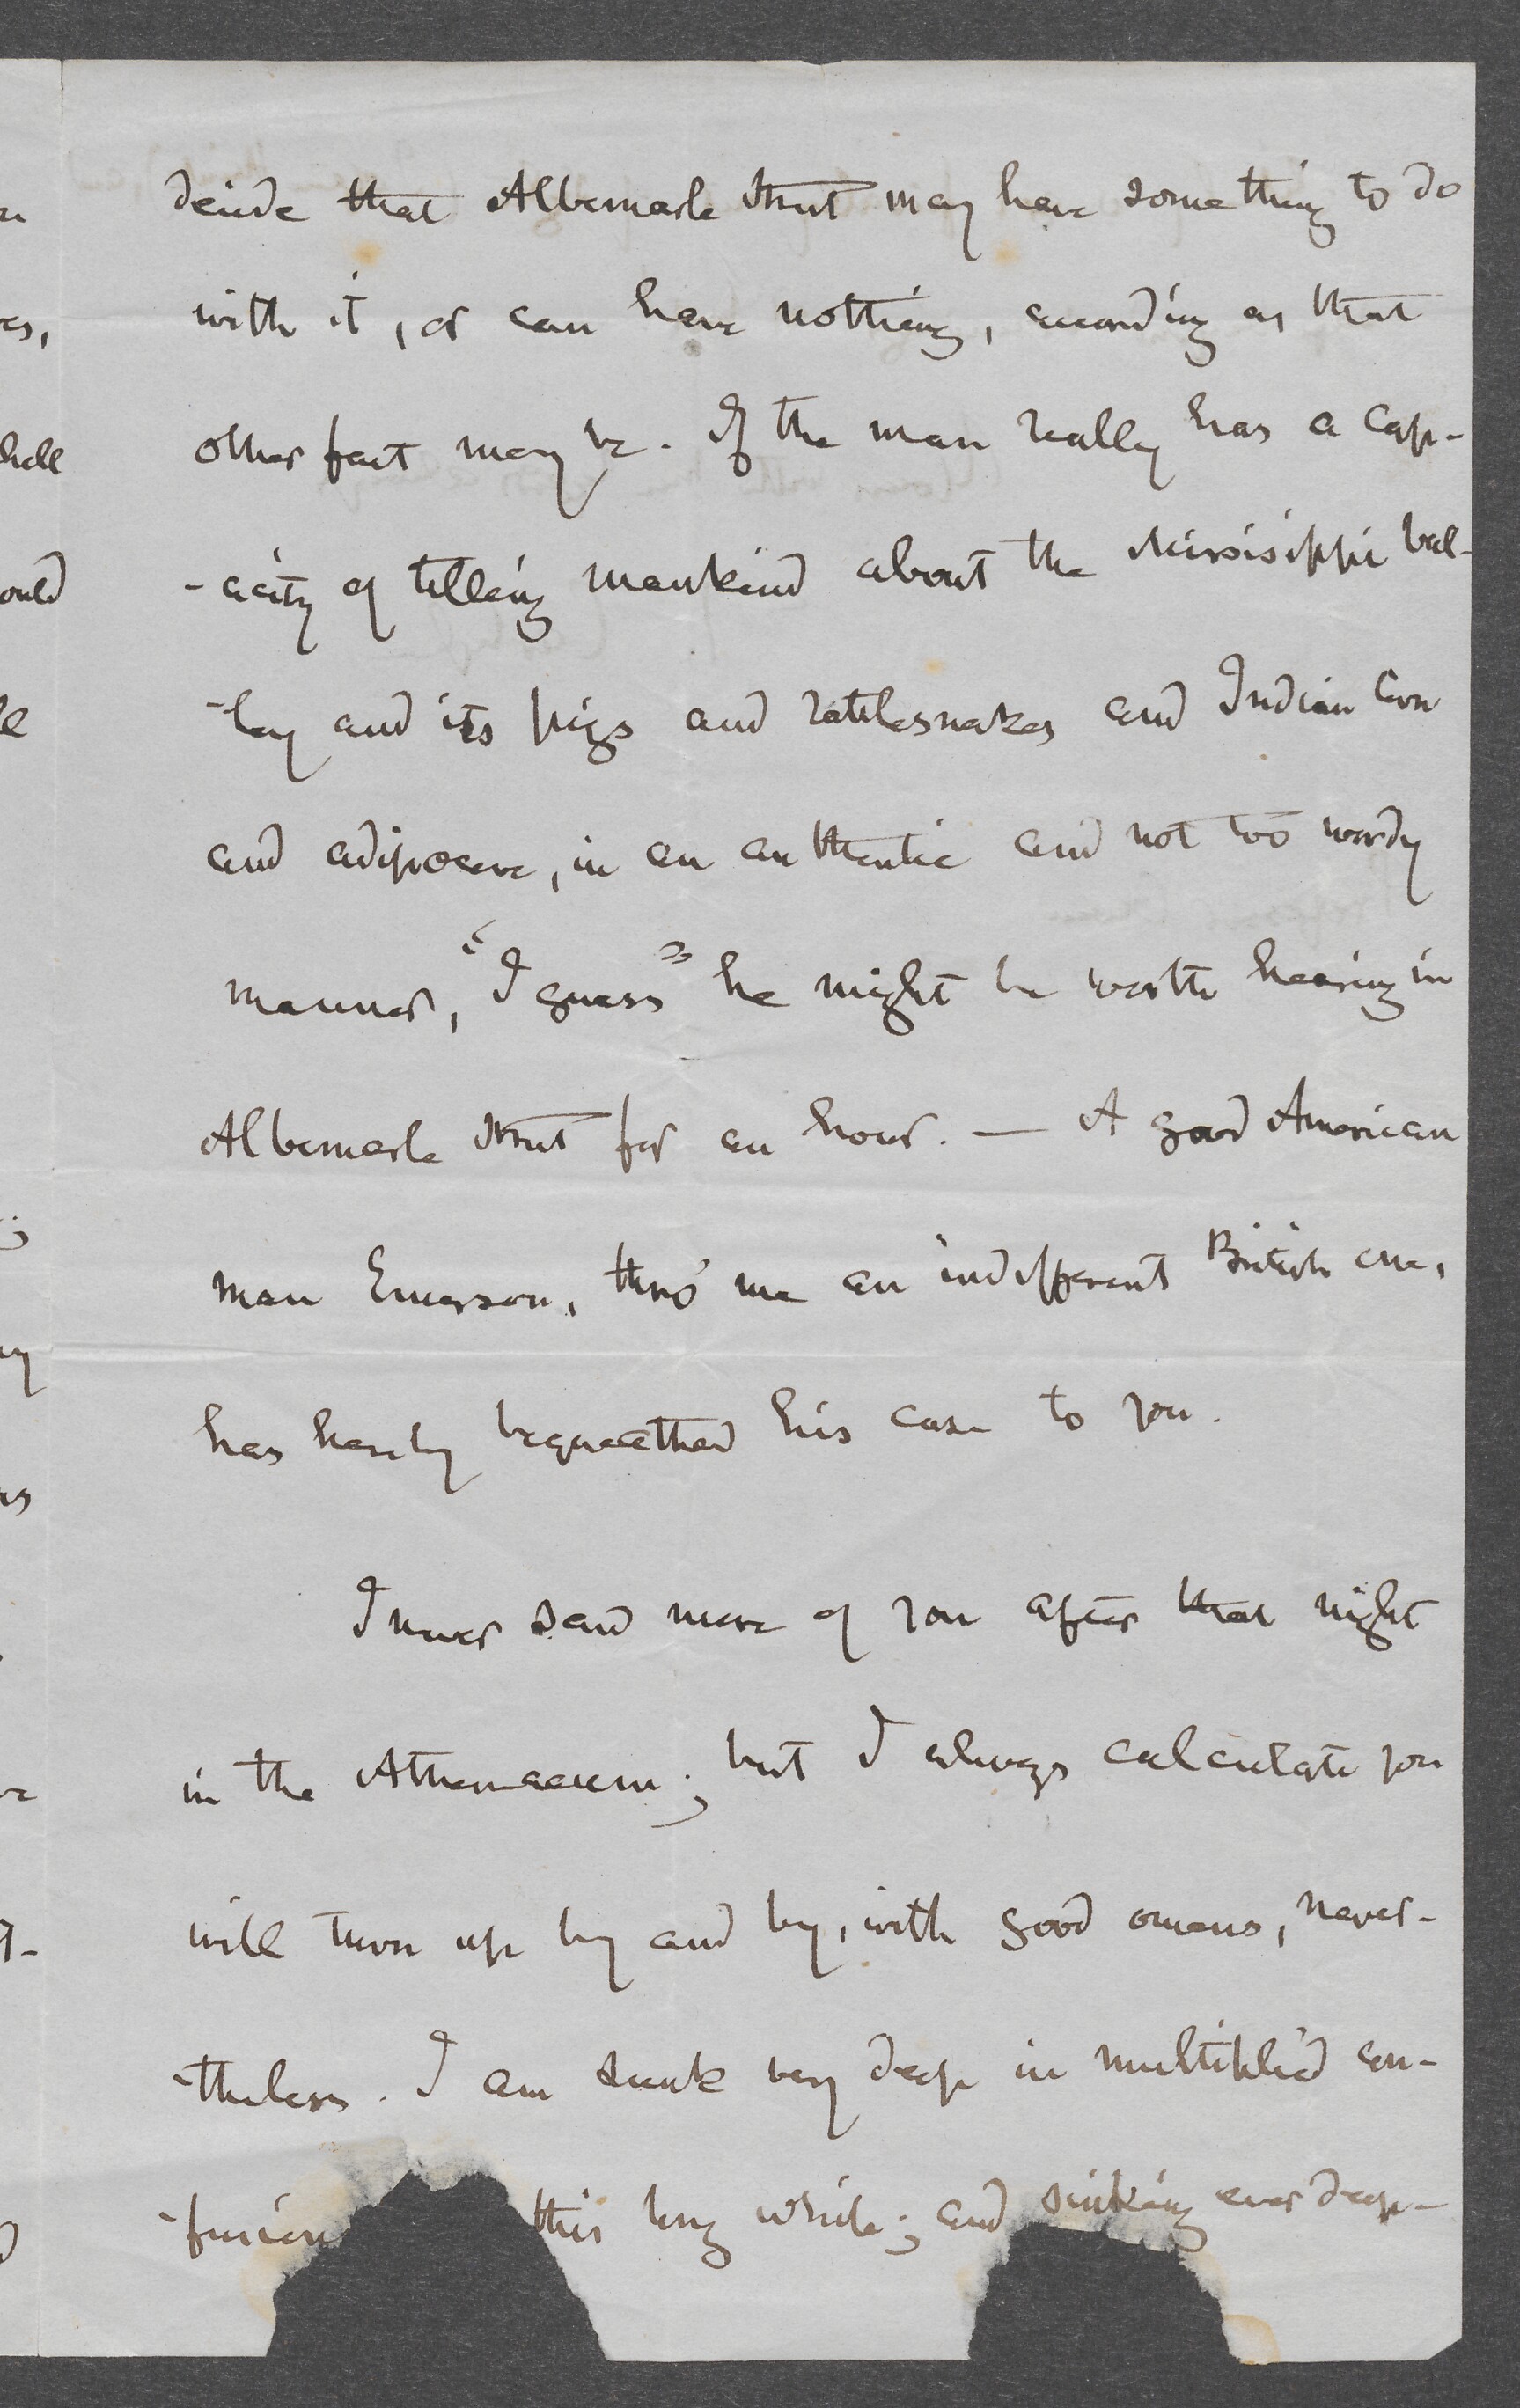 decide that Albemarle Street may have something to do
with it, or can have nothing, according as that
other fact may be. If the man really has a cap-
-acity of telling mankind about the Mississippi Val-
-ley and its pigs and rattlesnakes and Indian Corn
and adipocere, in an authentic and not too wordy
manner, "I guess" he might be worth hearing in
Albemarle Street for an hour. — A good American
man Emerson, thro' me an indifferent British one,
has hereby bequeathed his case to you.
I never saw more of you after that night
in the Athenaeum; but I always calculate you
will turn up by and by, with good omens, never-
-theless. I am sunk very deep in multiplied con-
-fusion this long while; and sinking ever deep-
hall
ould